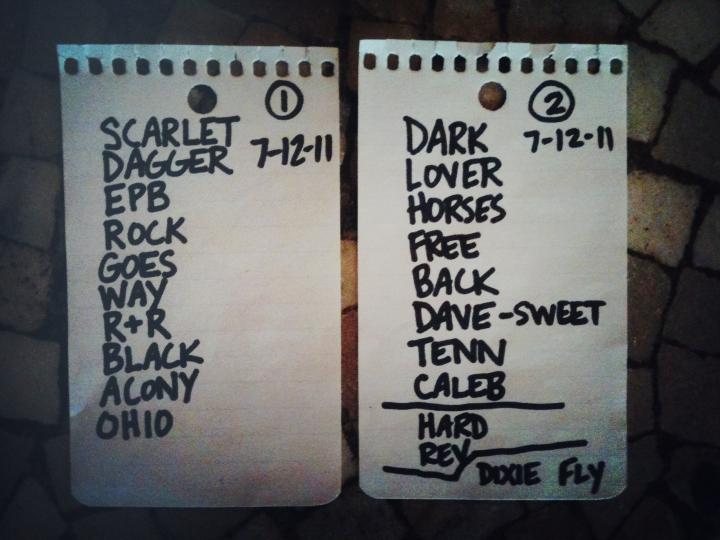 1
SCARLET
DAGGER 7-12-11
EPB
ROCK
GOES
WAY
R+R
BLACK
ACONY
OHIO
2
DARK 7-12-11
LOVER
HORSES
FREE
BACK
DAVE-SWEET
TENN
CALEB
HARD
REV
DIXIE FLY